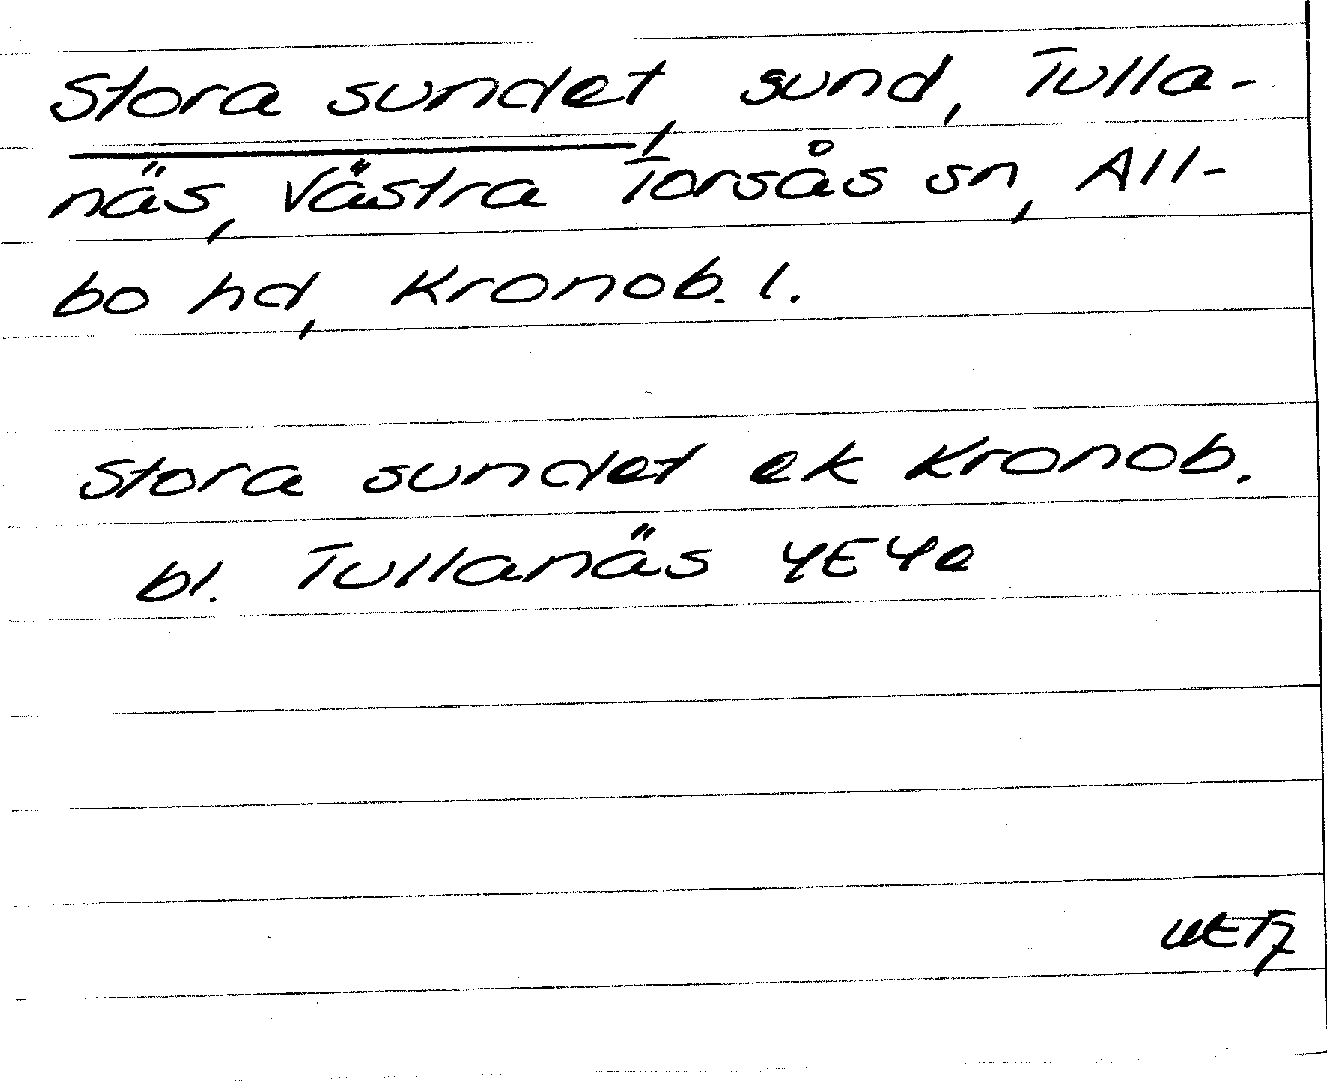 Stora sundet, sund, Tulla-
näs, Västra Torsås sn, All-
bo hd, Kronob. l.
Stora sundet ek Kronob.
bl. Tullanäs 4E4e